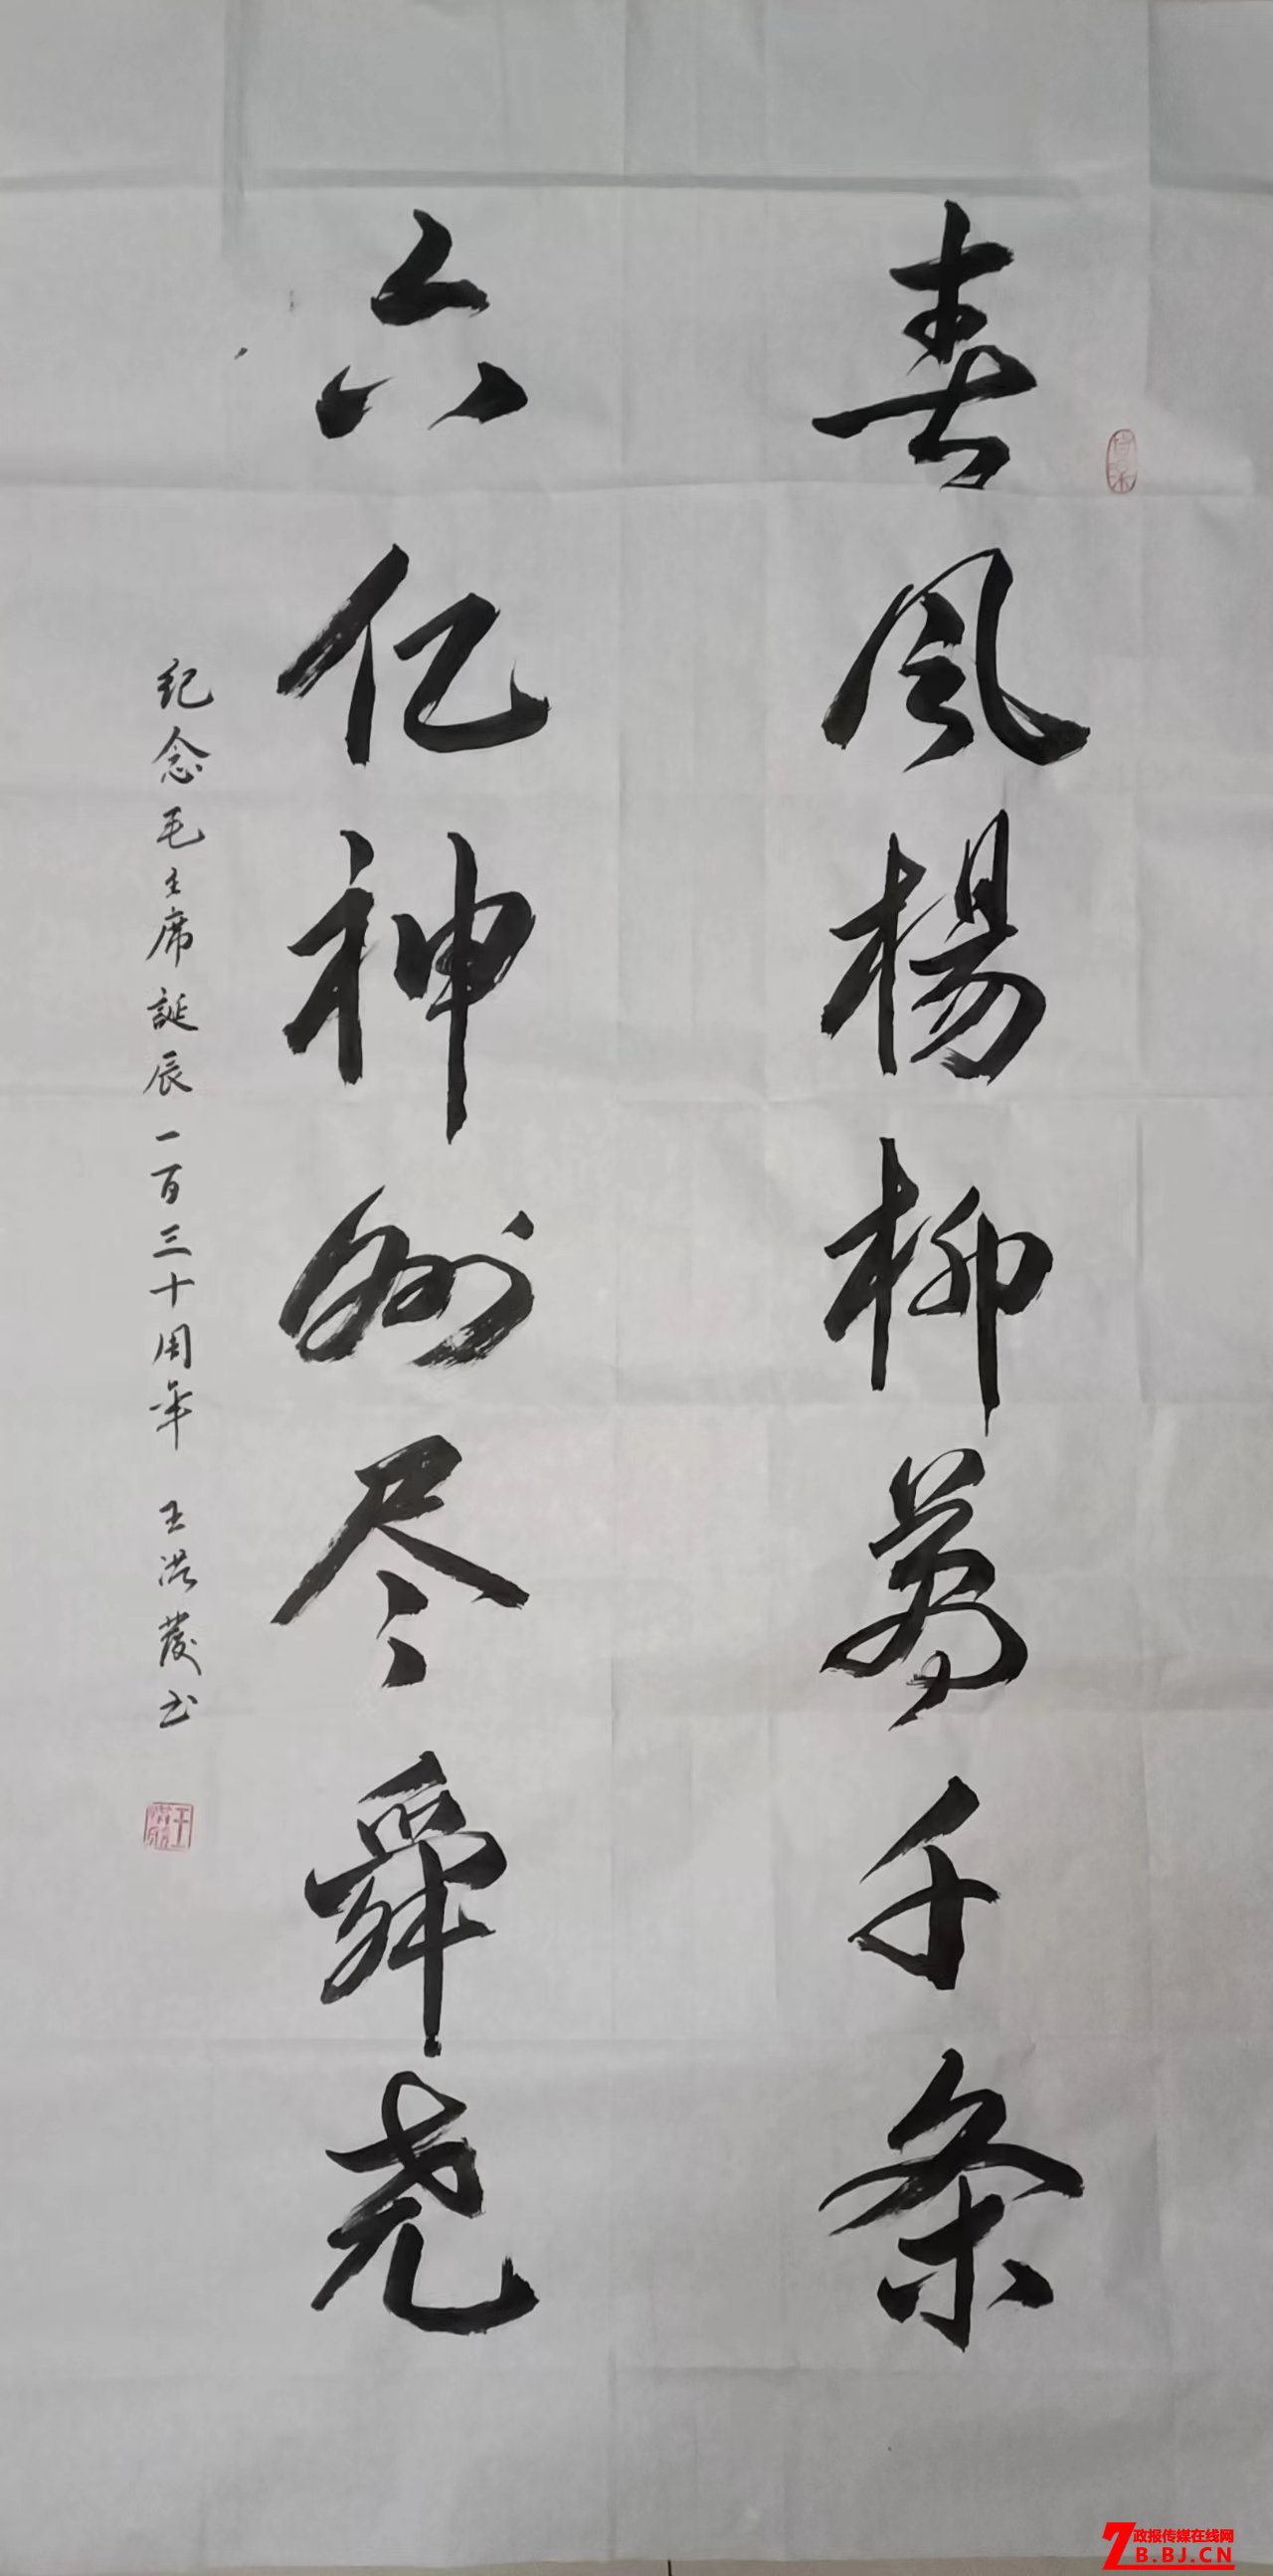 春风楊柳萬千条
六亿神州尽舜尧
纪念毛主席誕辰一百三十周年 王洪發书
政报传媒在线网
ZB.BJ.CN